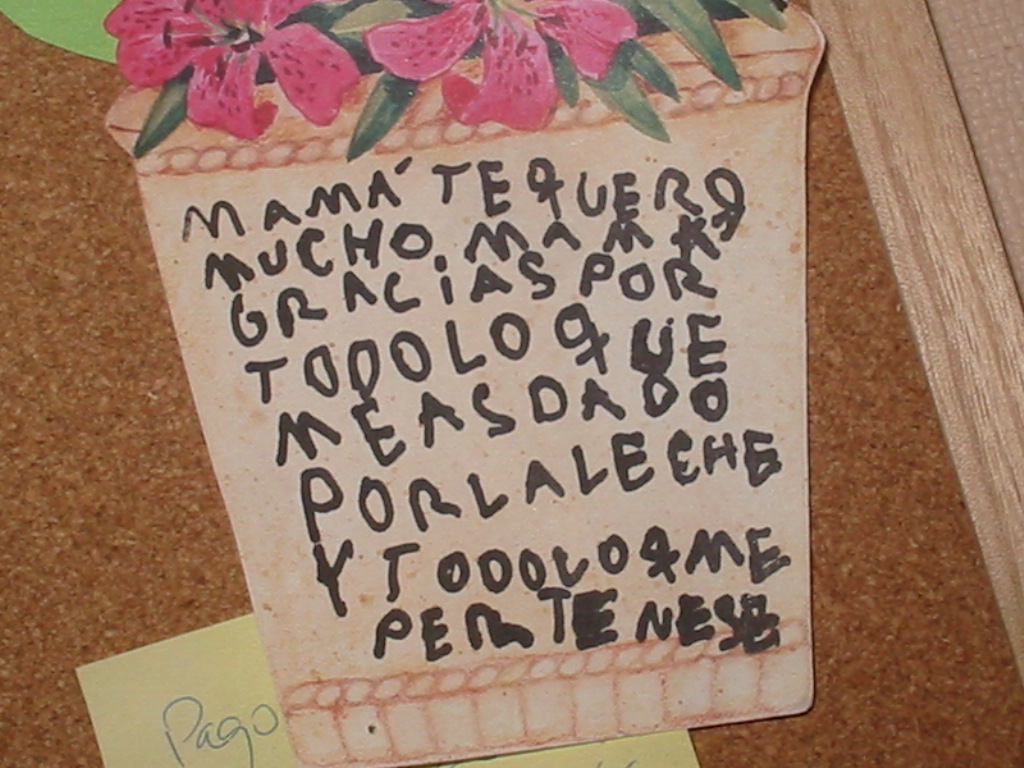 MAMÁ TE QUERO
MUCHO, MAMA,
GRACIAS POR
TODO LO QUE
ME AS DADO
POR LA LECHE
Y TODO LO Q ME
PERTENESE
Pago